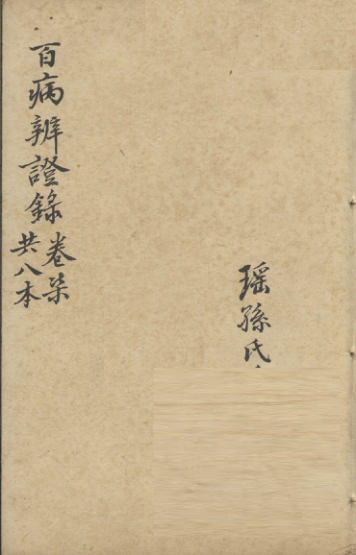 百病辨證錄卷柒
共八本
瑶孫氏